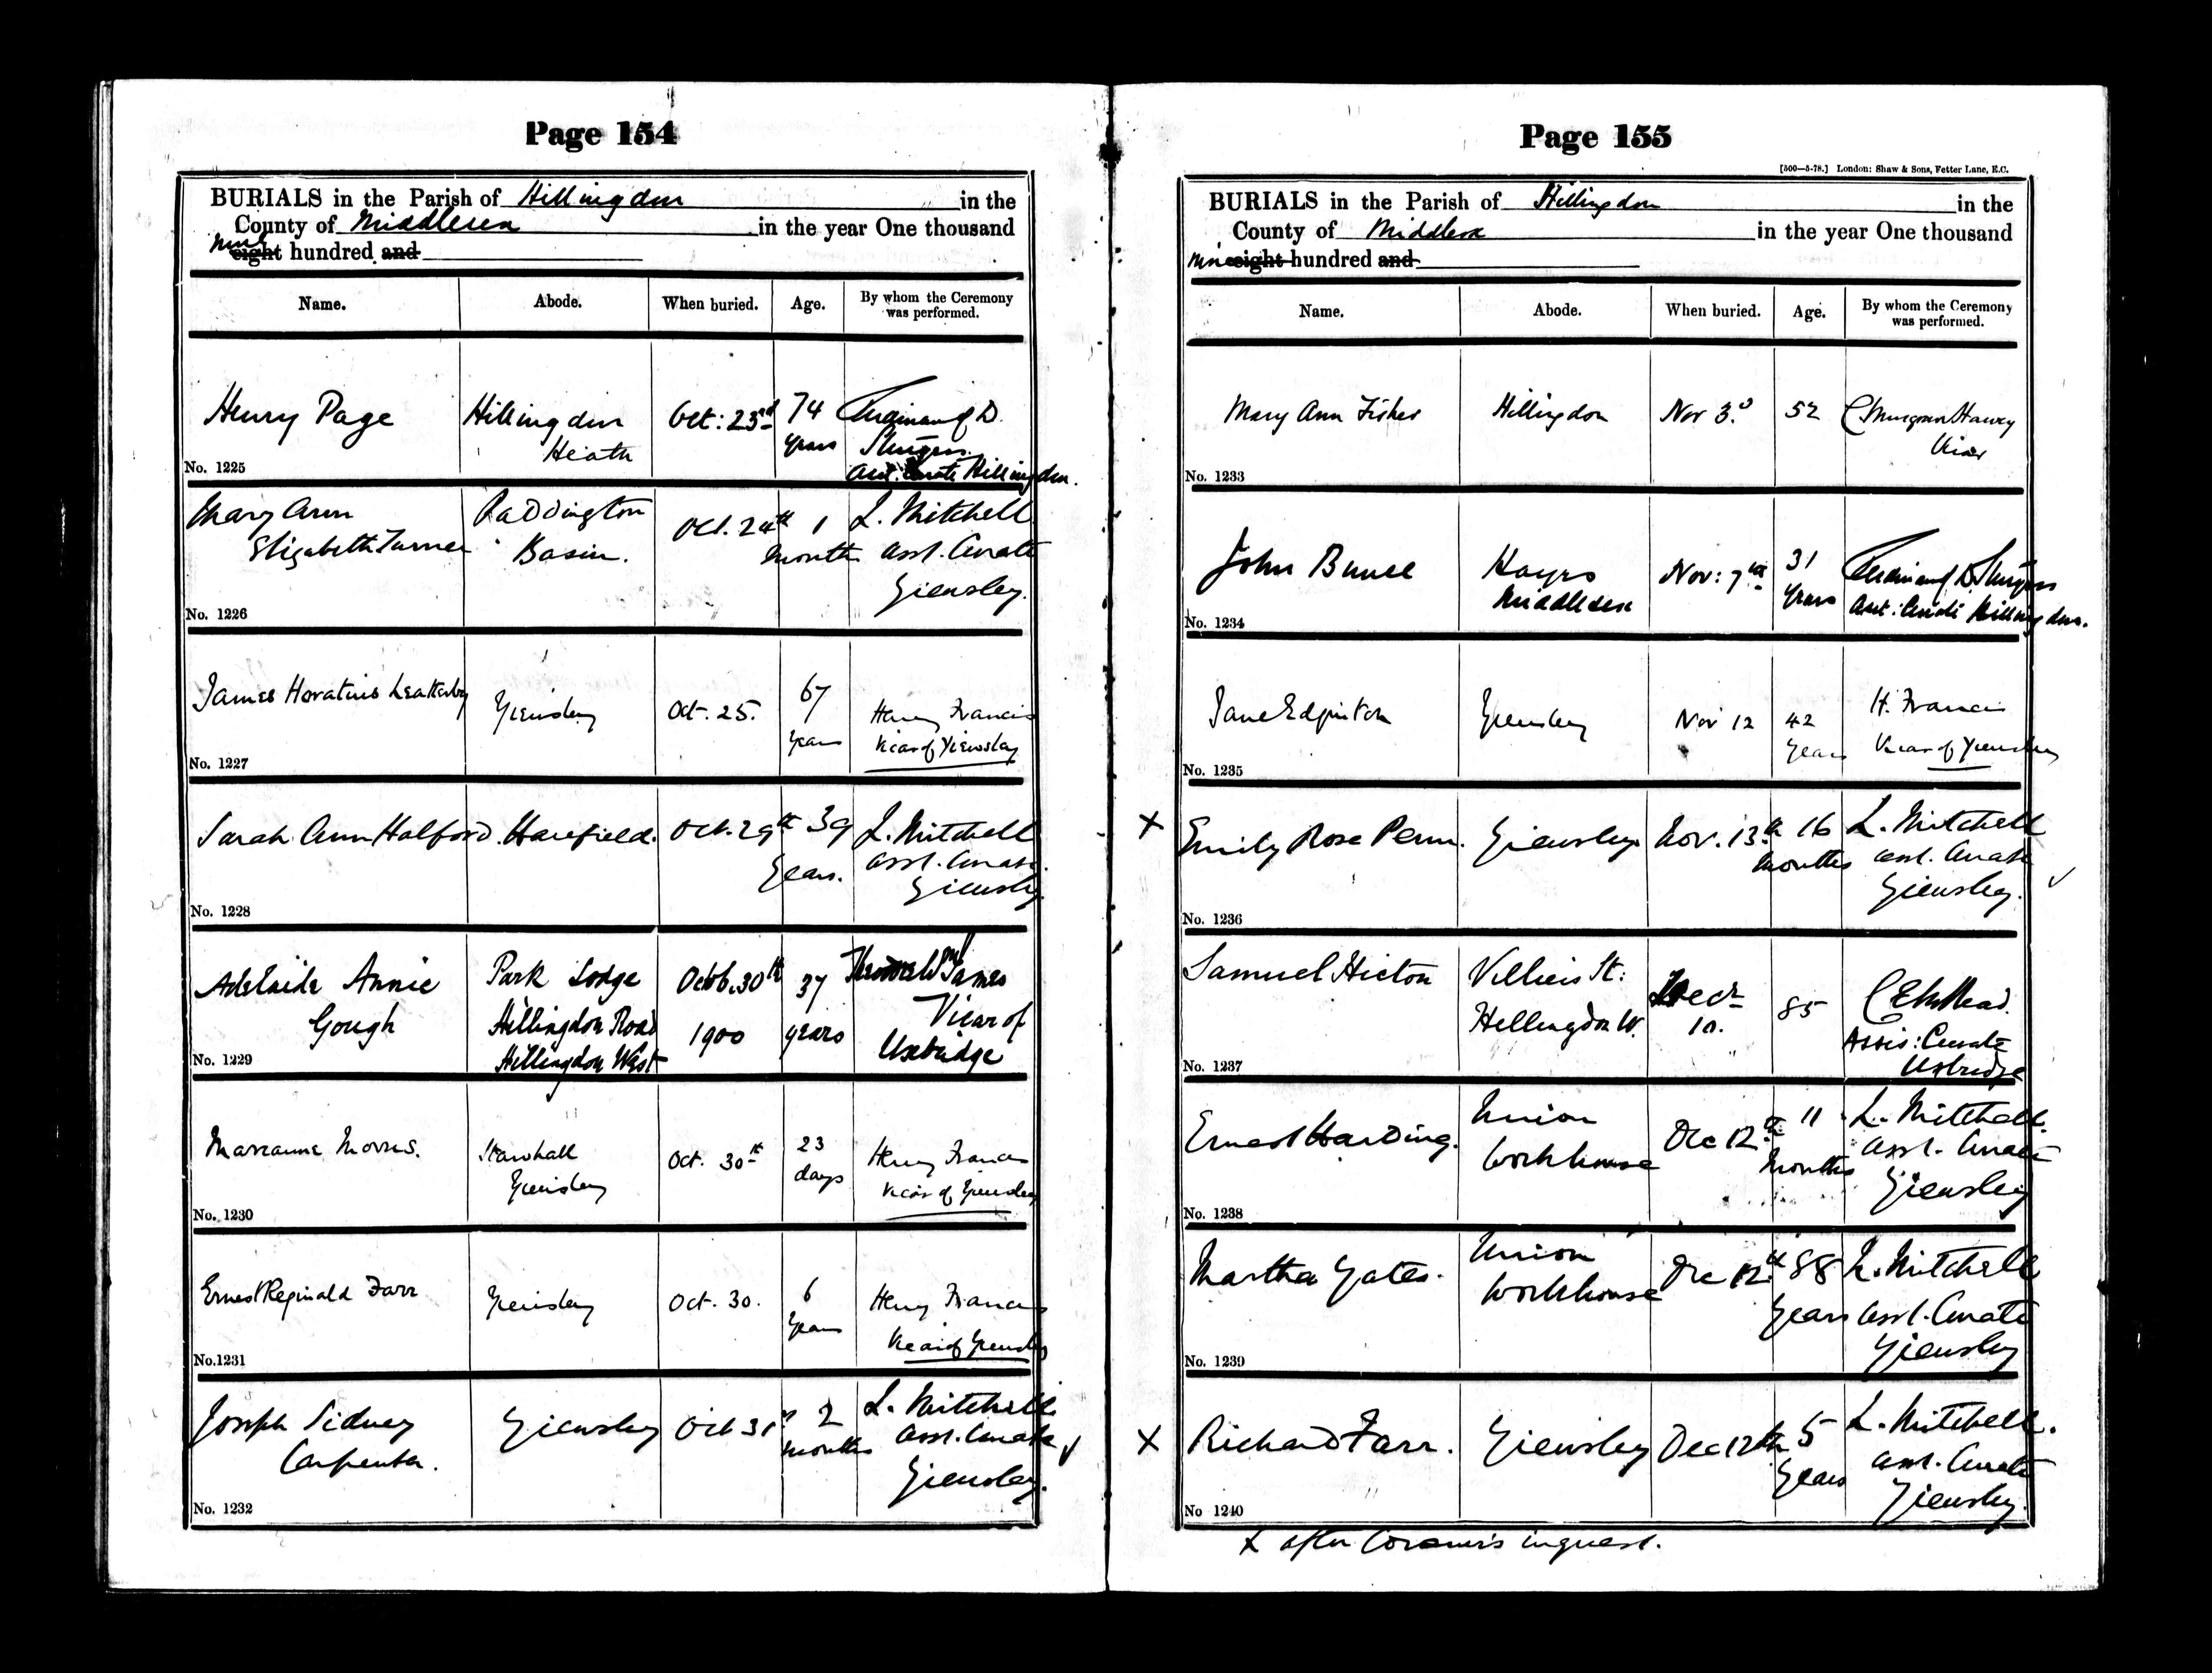 Page 154
BURIALS in the Parish of Hillingdon in the
County of Middlesex in the year One thousand
nine eight hundred and
Name. Abode. When buried. Age. By whom the Ceremony was performed.
Henry Page Hillingdon Oct: 23rd 74 Ferdinand D.
Heath years Sturges
No. 1225 Asst. Curate Hillingdon.
Mary Ann Paddington Oct. 24th 1 L. Mitchell
Elizabeth Turner Basin. month asst. Curate
Yiewsley.
No. 1226
James Horatius Leatherby Yiewsley Oct. 25. 67 Henry Francis
years Vicar of Yiewsley
No. 1227
Sarah Ann Halford. Harefield. Oct. 29th 39 L. Mitchell
years. asst. Curate.
Yiewsley
No. 1228
Adelaide Annie Park Lodge Octob. 30th 37 James
Gough Hillingdon Road 1900 years Vicar of
No. 1229 Hillingdon West Uxbridge
Marianne Morris. Starhall Oct. 30th 23 Henry Francis
Yiewsley days Vicar of Yiewsley
No. 1230
Ernest Reginald Farr Yiewsley Oct. 30. 6 Henry Francis
years Vicar of Yiewsley
No. 1231
Joseph Sidney Yiewsley Oct 31st 2 L. Mitchell
Carpenter. months asst. Curate
Yiewsley.
No. 1232
Page 155
[500—5-78.] London: Shaw & Sons, Fetter Lane, E.C.
BURIALS in the Parish of Hillingdon in the
County of Middlesex in the year One thousand
nine eight hundred and
Name. Abode. When buried. Age. By whom the Ceremony was performed.
Mary Ann Fisher Hillingdon Nov 3d 52 C Musgrave Harvey
Vicar
No. 1233
John Bunce Hayes Nov: 7th 31 Ferdinand D. Sturges
Middlesex years Asst: Curate Hillingdon.
No. 1234
Jane Edginton Yiewsley Nov 12 42 H. Francis
years Vicar of Yiewsley
No. 1235
X Emily Rose Penn. Yiewsley Nov. 13th 16 L. Mitchell
months asst. Curate
Yiewsley.
No. 1236
Samuel Hicton Villiers St: Decr 85 C E
Hillingdon W. 10. Assis: Curate
No. 1237 Uxbridge
Ernest Harding. Union Dec 12th 11 L. Mitchell.
Workhouse months asst. Curate
Yiewsley
No. 1238
Martha Yates. Union Dec 12th 88 L. Mitchell
Workhouse years asst. Curate
Yiewsley
No. 1239
X Richard Farr. Yiewsley Dec 12th 5 L. Mitchell.
years asst. Curate
Yiewsley.
No 1240
X after Coroner's inquest.